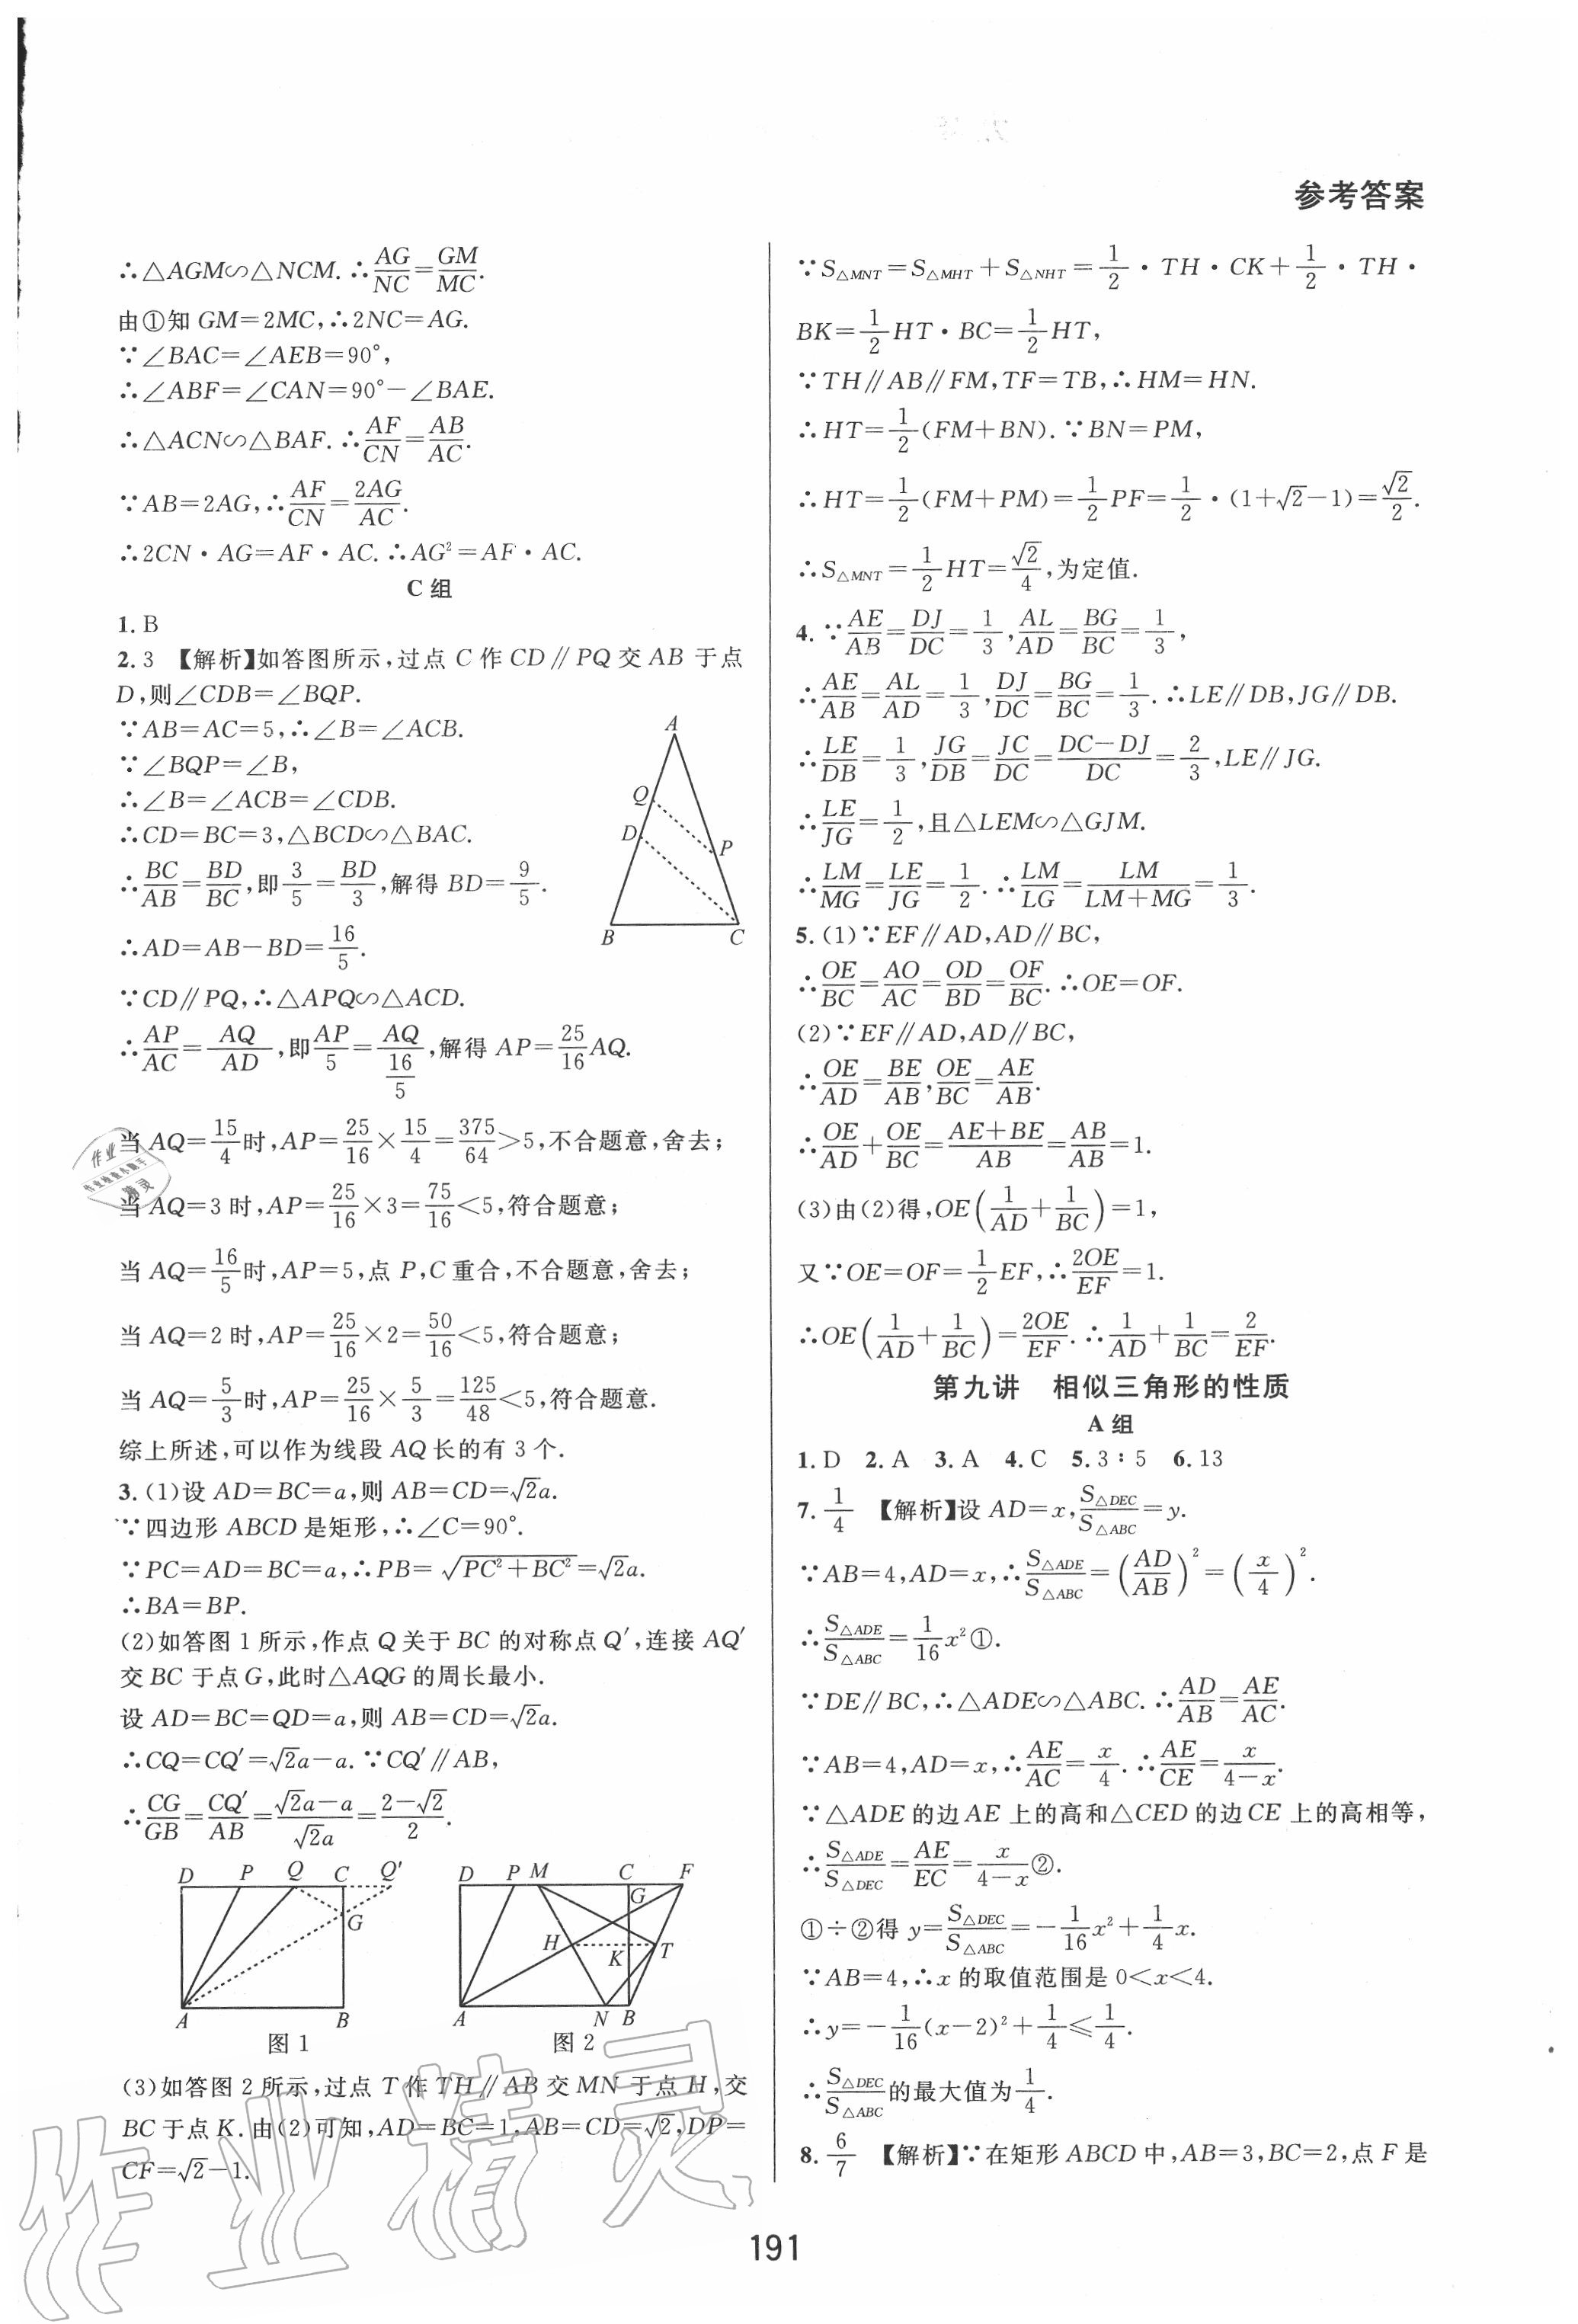 参考答案
∴△AGM∽△NCM. ∴AG/NC=GM/MC.
由①知GM=2MC,∴2NC=AG.
∵∠BAC=∠AEB=90°,
∴∠ABF=∠CAN=90°-∠BAE.
∴△ACN∽△BAF. ∴AF/CN=AB/AC.
∵AB=2AG,∴AF/CN=2AG/AC.
∴2CN·AG=AF·AC. ∴AG²=AF·AC.
C组
1. B
2. 3 【解析】如答图所示,过点C作CD∥PQ交AB于点
D,则∠CDB=∠BQP.
∵AB=AC=5,∴∠B=∠ACB.
∵∠BQP=∠B,
∴∠B=∠ACB=∠CDB.
∴CD=BC=3,△BCD∽△BAC.
∴BC/AB=BD/BC,即3/5=BD/3,解得BD=9/5.
∴AD=AB-BD=16/5.
A
Q
D
P
B
C
∵CD∥PQ,∴△APQ∽△ACD.
∴AP/AC=AQ/AD,即AP/5=AQ/(16/5),解得AP=25/16AQ.
当AQ=15/4时,AP=25/16×15/4=375/64>5,不合题意,舍去;
当AQ=3时,AP=25/16×3=75/16<5,符合题意;
当AQ=16/5时,AP=5,点P,C重合,不合题意,舍去;
当AQ=2时,AP=25/16×2=50/16<5,符合题意;
当AQ=5/3时,AP=25/16×5/3=125/48<5,符合题意.
综上所述,可以作为线段AQ长的有3个.
3. (1)设AD=BC=a,则AB=CD=√2a.
∵四边形ABCD是矩形,∴∠C=90°.
∵PC=AD=BC=a,∴PB=√(PC²+BC²)=√2a.
∴BA=BP.
(2)如答图1所示,作点Q关于BC的对称点Q′,连接AQ′
交BC于点G,此时△AQG的周长最小.
设AD=BC=QD=a,则AB=CD=√2a.
∴CQ=CQ′=√2a-a. ∵CQ′∥AB,
∴CG/GB=CQ′/AB=(√2a-a)/√2a=(2-√2)/2.
D P Q C Q′
G
A B
图1
D P M C F
G
H K T
A N B
图2
(3)如答图2所示,过点T作TH∥AB交MN于点H,交
BC于点K. 由(2)可知,AD=BC=1,AB=CD=√2,DP=
CF=√2-1.
∵S△MNT=S△MHT+S△NHT=1/2·TH·CK+1/2·TH·
BK=1/2HT·BC=1/2HT,
∵TH∥AB∥FM,TF=TB,∴HM=HN.
∴HT=1/2(FM+BN). ∵BN=PM,
∴HT=1/2(FM+PM)=1/2PF=1/2·(1+√2-1)=√2/2.
∴S△MNT=1/2HT=√2/4,为定值.
4. ∵AE/AB=DJ/DC=1/3,AL/AD=BG/BC=1/3,
∴AE/AB=AL/AD=1/3,DJ/DC=BG/BC=1/3. ∴LE∥DB,JG∥DB.
∴LE/DB=1/3,JG/DB=JC/DC=(DC-DJ)/DC=2/3,LE∥JG.
∴LE/JG=1/2,且△LEM∽△GJM.
∴LM/MG=LE/JG=1/2. ∴LM/LG=LM/(LM+MG)=1/3.
5. (1)∵EF∥AD,AD∥BC,
∴OE/BC=AO/AC=OD/BD=OF/BC. ∴OE=OF.
(2)∵EF∥AD,AD∥BC,
∴OE/AD=BE/AB,OE/BC=AE/AB.
∴OE/AD+OE/BC=(AE+BE)/AB=AB/AB=1.
(3)由(2)得,OE(1/AD+1/BC)=1,
又∵OE=OF=1/2EF,∴2OE/EF=1.
∴OE(1/AD+1/BC)=2OE/EF. ∴1/AD+1/BC=2/EF.
第九讲 相似三角形的性质
A组
1. D 2. A 3. A 4. C 5. 3∶5 6. 13
7. 1/4 【解析】设AD=x,S△DEC/S△ABC=y.
∵AB=4,AD=x,∴S△ADE/S△ABC=(AD/AB)²=(x/4)².
∴S△ADE/S△ABC=1/16x²①.
∵DE∥BC,∴△ADE∽△ABC. ∴AD/AB=AE/AC.
∵AB=4,AD=x,∴AE/AC=x/4. ∴AE/CE=x/(4-x).
∵△ADE的边AE上的高和△CED的边CE上的高相等,
∴S△ADE/S△DEC=AE/EC=x/(4-x)②.
①÷②得y=S△DEC/S△ABC=-1/16x²+1/4x.
∵AB=4,∴x的取值范围是0<x<4.
∴y=-1/16(x-2)²+1/4≤1/4.
∴S△DEC/S△ABC的最大值为1/4.
8. 6/7 【解析】∵在矩形ABCD中,AB=3,BC=2,点F是
191
作业精灵